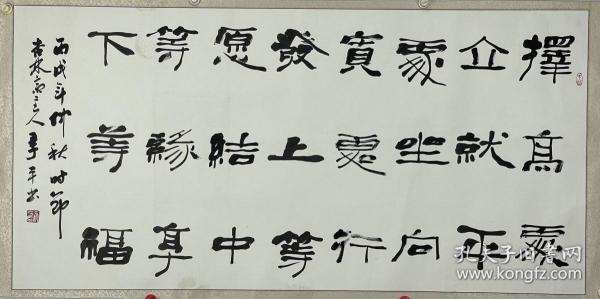 擇高處
立就平
處坐向
寬處行
發上等
愿結中
等緣享
下等福
丙戌年仲秋时节
杏林 主人 平书
孔夫子旧书网
www.kongfz.com